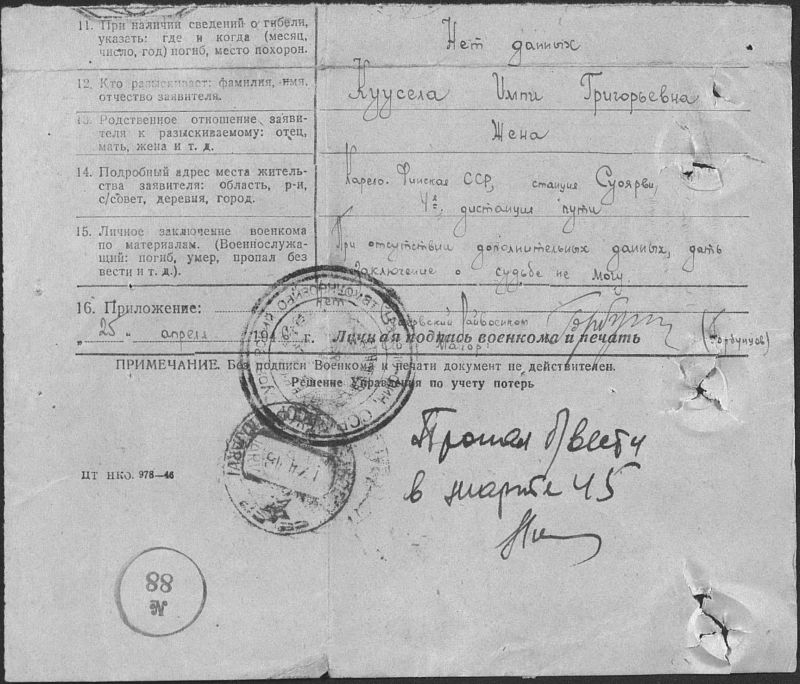 11. При наличии сведений о гибели, указать: где и когда (месяц, число, год) погиб, место похорон.
Нет данных
12. Кто разыскивает: фамилия, имя, отчество заявителя.
Куусела Импи Григорьевна
13. Родственное отношение заявителя к разыскиваемому: отец, мать, жена и т. д.
Жена
14. Подробный адрес места жительства заявителя: область, р-н, с/совет, деревня, город.
Карело-Финская ССР, станция Суоярви,
4я дистанция пути
15. Личное заключение военкома по материалам. (Военнослужащий: погиб, умер, пропал без вести и т. д.).
При отсутствии дополнительных данных, дать
заключение о судьбе не могу.
16. Приложение:
нет
Райвоенком
"25" апреля 194 г. Личная подпись военкома и печать
Майор
(Горбунцов)
ПРИМЕЧАНИЕ. Без подписи Военкома и печати документ не действителен.
Решение Управления по учету потерь
Пропал б/вести
в марте 45
ЦТ НКО. 978—46
№
88